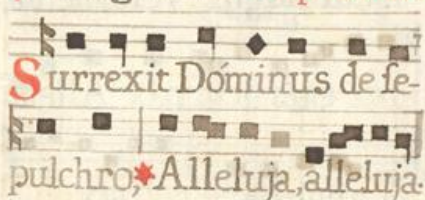 Surrexit Dóminus de se-
pulchro,*Alleluja, alleluja.